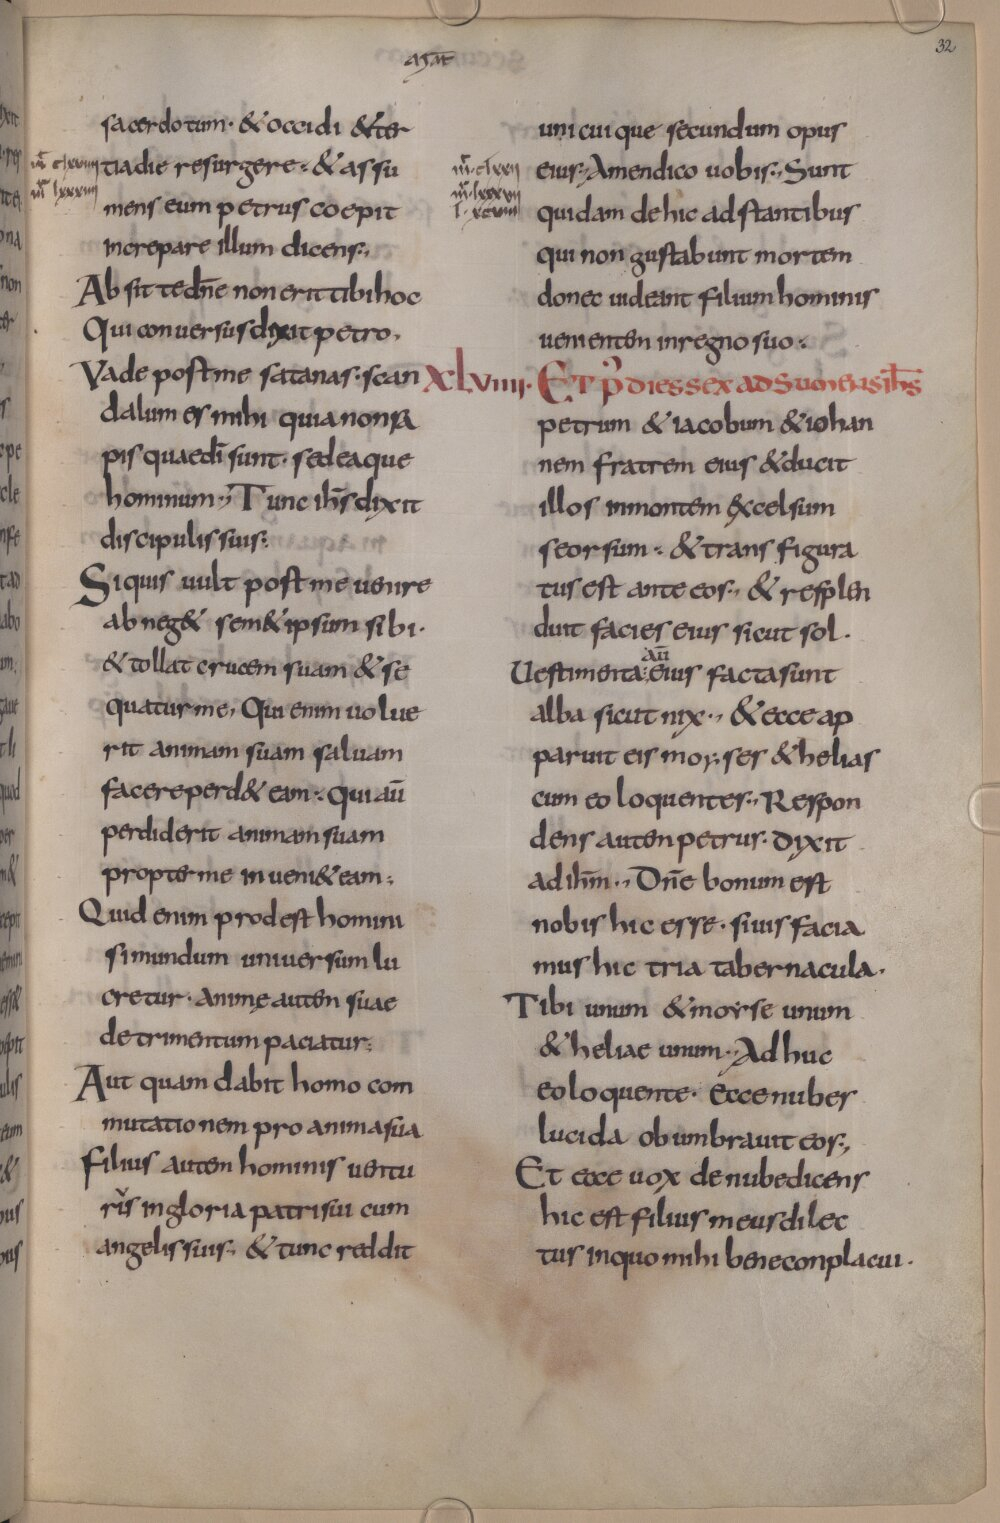 32
sacerdotum· & occidi & ter
tiadie resurgere : & assu
mens eum petrus coepit
increpare illum dicens:,
Absit te dn̄e non erit tibi hoc
Qui conuersus dixit petro,
Vade post me satanas· scan
dalum es mihi quia non sa
pis quae dī sunt· sed ea que
hominum:, Tunc ih̄s dixit
discipulis suis:
Siquis uult post me uenire
abneg& sem&ipsum sibi·
& tollat crucem suam & se
quatur me, Qui enim uolue
rit animam suam saluam
facere perd& eam : Qui aū
perdiderit animam suam
propter me inueni& eam :
Quid enim prodest homini
si mundum uniuersum lu
cretur· animę autem suae
detrimentum paciatur:
Aut quam dabit homo com
mutationem pro anima sua
filius autem hominis uentu
rus in gloria patris sui cum
angelis suis:, & tunc reddit
unicuique secundum opus
eius:, Amen dico uobis:, Sunt
quidam de hic adstantibus
qui non gustabunt mortem
donec uideant filium hominis
uenientem in regno suo :
XLVIIII· ET p̄ dies sex adsumens ih̄s
petrum & iacobum & iohan
nem fratrem eius & ducit
illos in montem excelsum
seorsum : & transfigura
tus est ante eos:, & resplen
duit facies eius sicut sol·
aū
Uestimenta: eius facta sunt
alba sicut nix·, & ecce ap
paruit eis moyses & helias
cum eo loquentes:, Respon
dens autem petrus· dixit
ad ihm̄·, Dn̄e bonum est
nobis hic esse· si uis facia
mus hic tria tabernacula·
Tibi unum & moyse unum
& heliae unum:, Adhuc
eo loquente· ecce nuber
lucida obumbrauit eos:,
Et ecce uox de nube dicens
hic est filius meus dilec
tus in quo mihi bene conplacui·